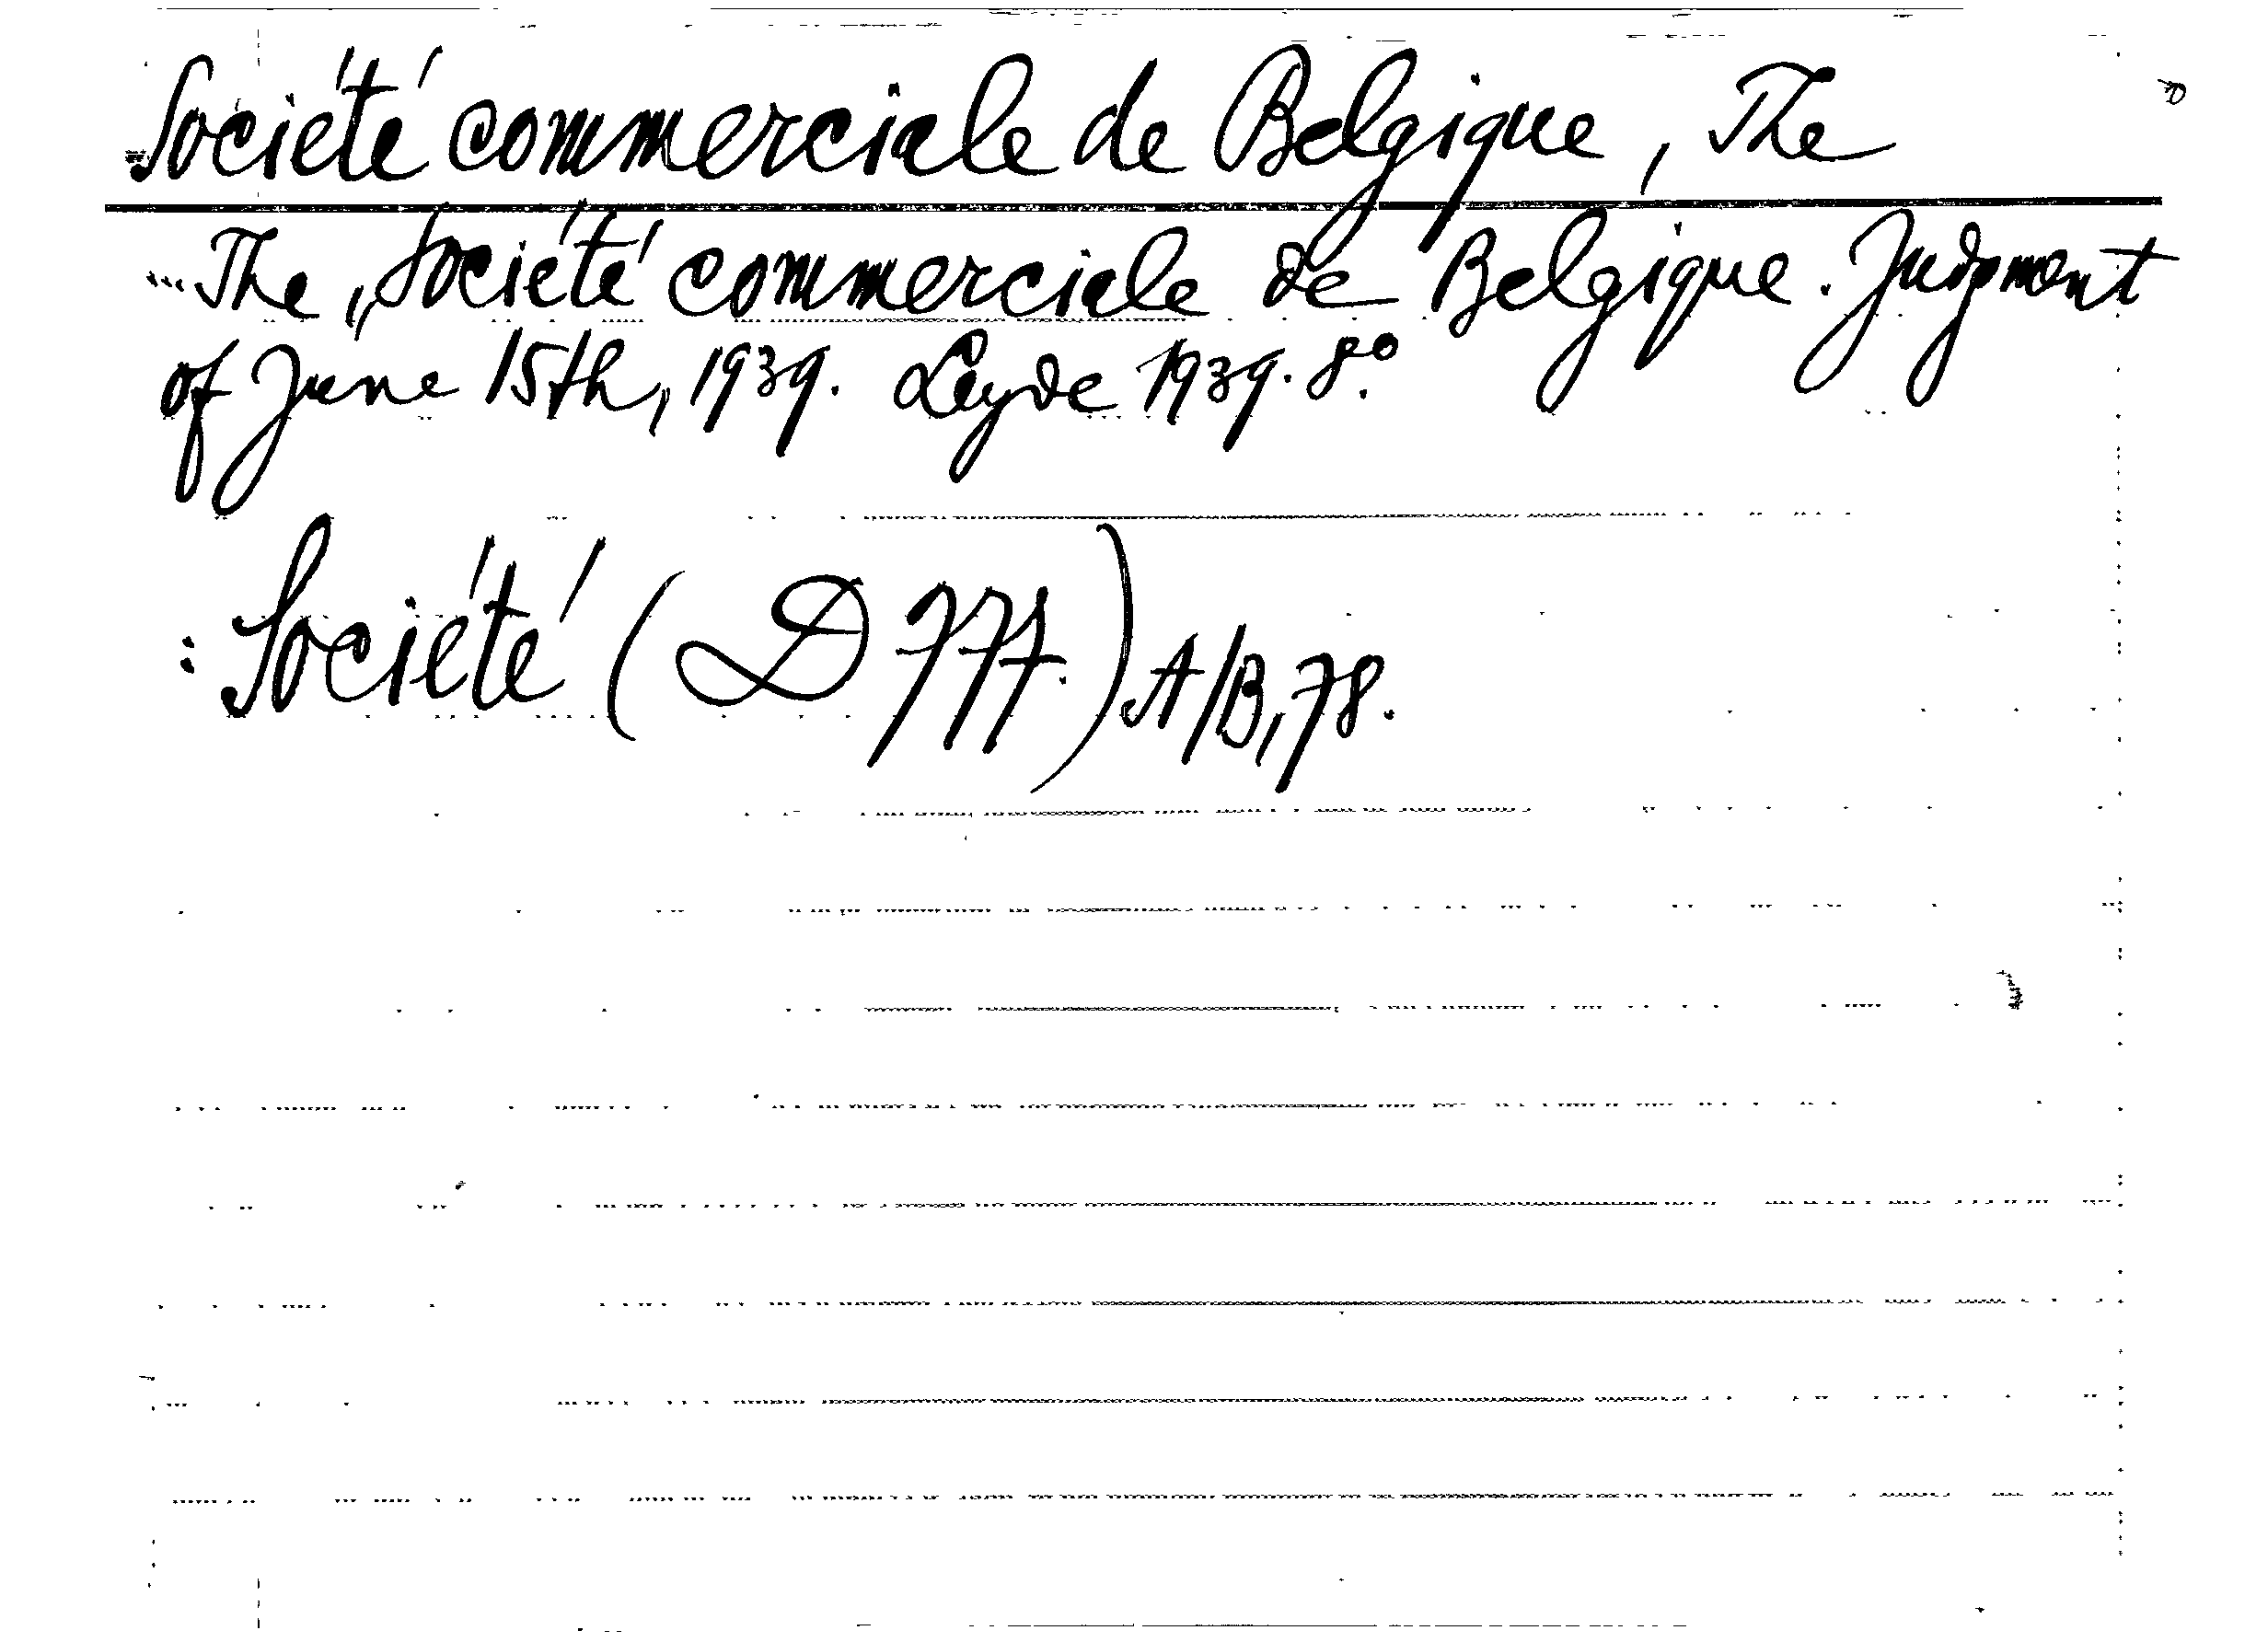 Société commerciale de Belgique, The
The „Société commerciale de Belgique. Judgment
of June 15th, 1939. Leyde 1939. 8º.
: Société (D 777.) A/B, 78.